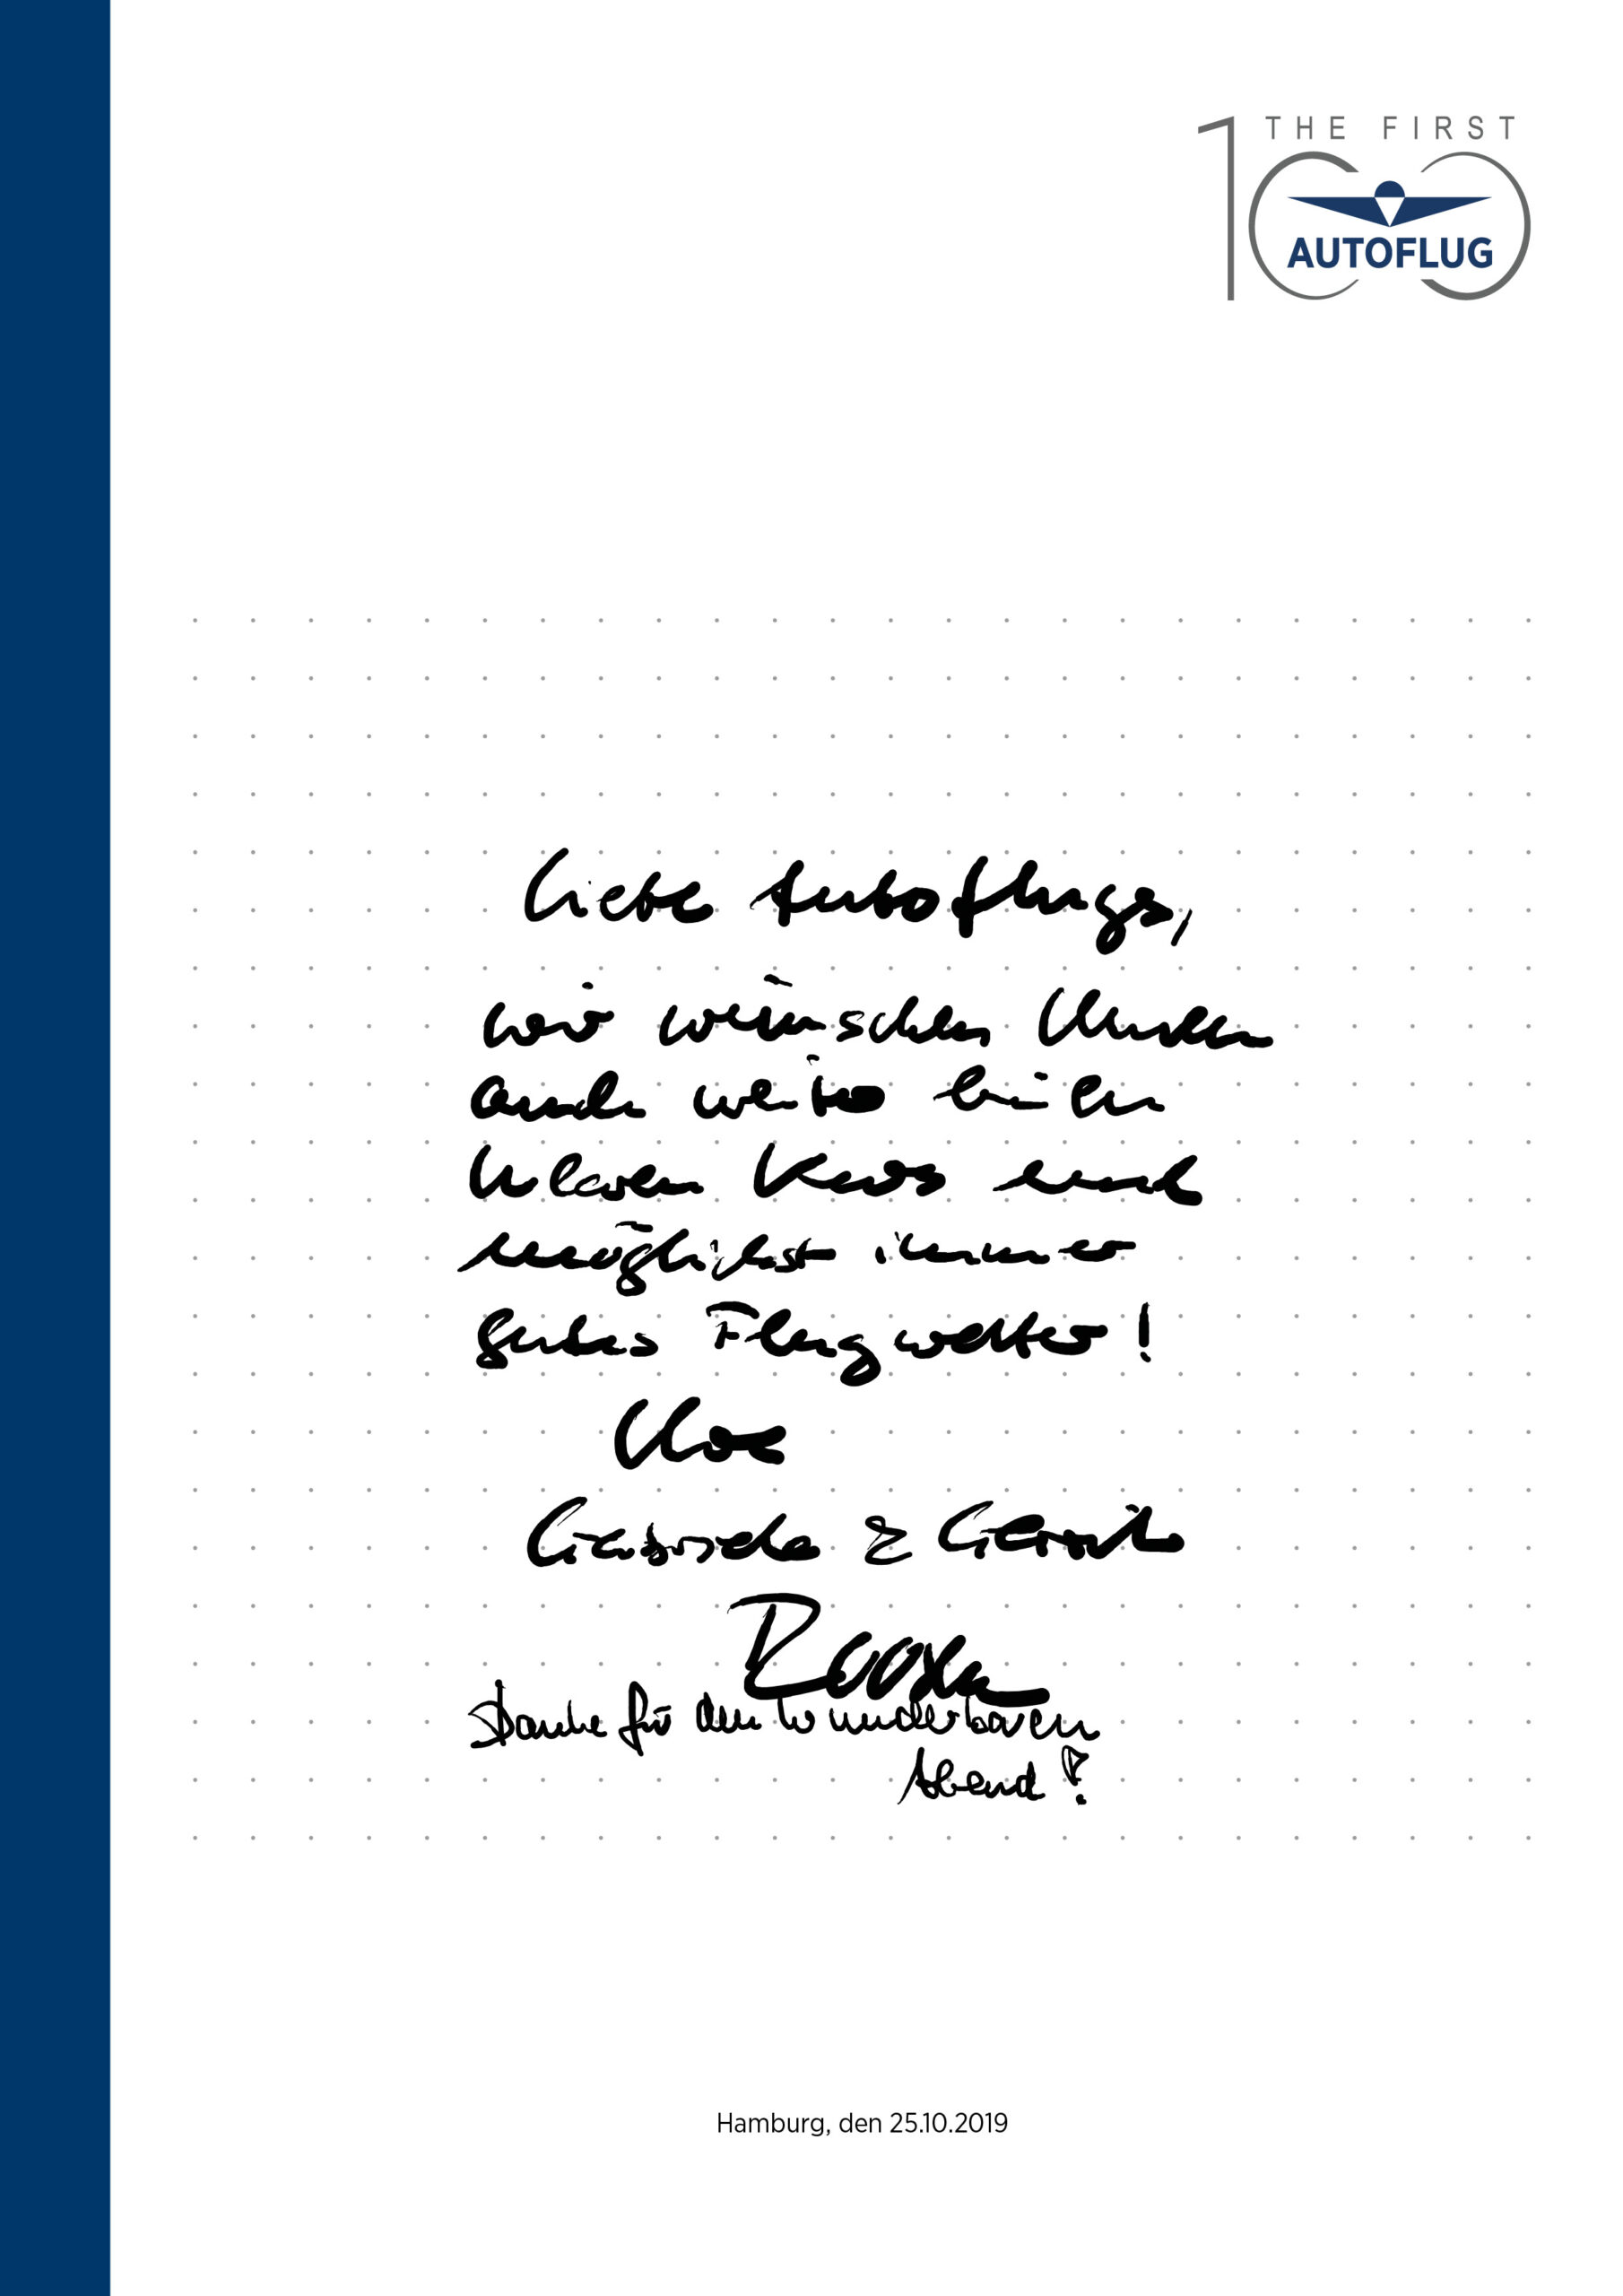 THE FIRST
100
AUTOFLUG
Liebe Autoflugs,
wir wünschen Ihnen
auch weiterhin
klaren Kurs und
möglichst immer
gutes Flugwetter!
Ihre
Gabriele &
Danke für den wunderbaren
Abend!
Hamburg, den 25.10.2019